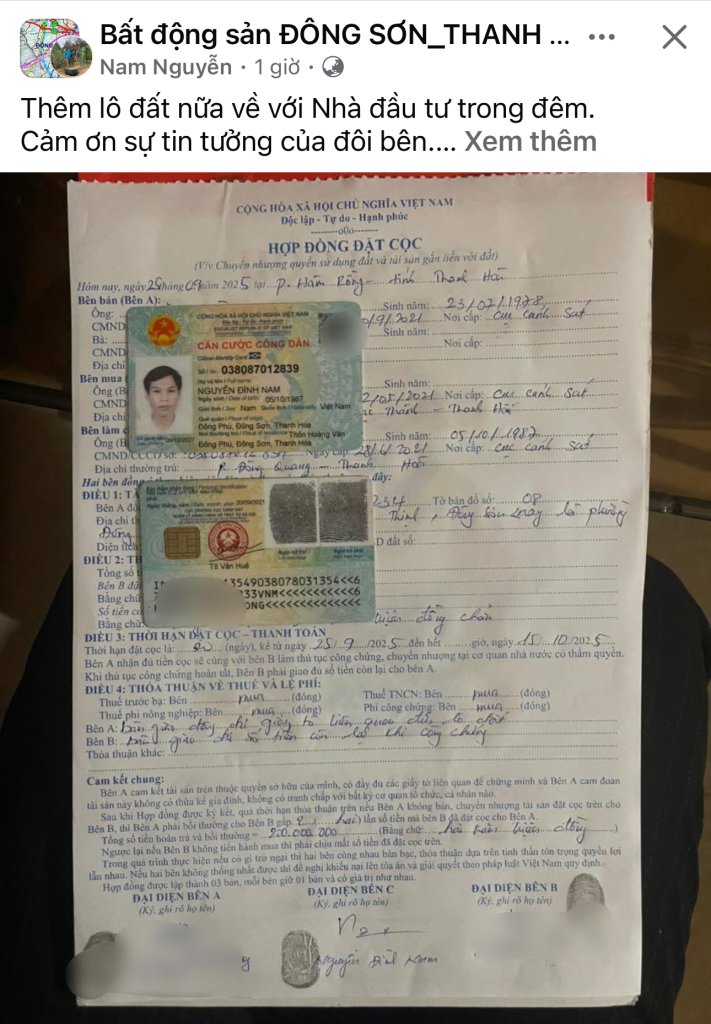 Bất động sản ĐÔNG SƠN_THANH ...
Nam Nguyễn · 1 giờ
Thêm lô đất nữa về với Nhà đầu tư trong đêm.
Cảm ơn sự tin tưởng của đôi bên.... Xem thêm
CỘNG HÒA XÃ HỘI CHỦ NGHĨA VIỆT NAM
Độc lập - Tự do - Hạnh phúc
HỢP ĐỒNG ĐẶT CỌC
(V/v Chuyển nhượng quyền sử dụng đất và tài sản gắn liền với đất)
Hôm nay, ngày 25 tháng 09 năm 2025 tại P. Hàm Rồng - tỉnh Thanh Hoá
Bên bán (Bên A):
Ông: Sinh năm: 23/07/1978
CMND 10/9/2021 Nơi cấp: Cục cảnh sát
Bà: Sinh năm:
CMND Nơi cấp:
Địa chỉ
Bên mua
Ông (B Sinh năm:
CMND 2/05/2021 Nơi cấp: Cục cảnh sát
Địa chỉ Thanh - Thanh Hoá
Bên làm c
Ông (B Sinh năm: 05/10/1987
CMND/CCCD số: Ngày cấp 28/6/2021 Nơi cấp: Cục cảnh sát
Địa chỉ thường trú: P Đông Quang - Thanh Hoá
Hai bên đồng đây:
ĐIỀU 1: TÀ
Bên A đồ 234 Tờ bản đồ số: 08
Địa chỉ th Thịnh, Đông Sơn nay là phường
Đông
Diện tích Đ đất số:
ĐIỀU 2: TH
Tổng số t
Bên B đã
Bằng chữ
Số tiền cò
Bằng chữ: triệu đồng chẵn
CỘNG HÒA XÃ HỘI CHỦ NGHĨA VIỆT NAM
Độc lập - Tự do - Hạnh phúc
SOCIALIST REPUBLIC OF VIET NAM
CĂN CƯỚC CÔNG DÂN
Citizen Identity Card
Số / No.: 038087012839
Họ và tên / Full name:
NGUYỄN ĐÌNH NAM
Ngày sinh / Date of birth: 05/10/1987
Giới tính / Sex: Nam Quốc tịch / Nationality: Việt Nam
Quê quán / Place of origin:
Đông Phú, Đông Sơn, Thanh Hóa
Nơi thường trú / Place of residence: Thôn Hoàng Văn
Đông Phú, Đông Sơn, Thanh Hóa
05/10/2027
Tô Văn Huệ
1354903807803 1354<<6
33VNM<<<<<<<<<<<6
ONG<<<<<<<<<<<<
ĐIỀU 3: THỜI HẠN ĐẶT CỌC – THANH TOÁN
Thời hạn đặt cọc là: 20 (ngày), kể từ ngày 25/9/2025 đến hết giờ, ngày 15/10/2025
Bên A nhận đủ tiền cọc sẽ cùng với bên B làm thủ tục công chứng, chuyển nhượng tại cơ quan nhà nước có thẩm quyền.
Khi thủ tục công chứng hoàn tất, Bên B phải giao đủ số tiền còn lại cho bên A.
ĐIỀU 4: THỎA THUẬN VỀ THUẾ VÀ LỆ PHÍ:
Thuế trước bạ: Bên mua (đóng) Thuế TNCN: Bên mua (đóng)
Thuế phi nông nghiệp: Bên mua (đóng) Phí công chứng: Bên mua (đóng)
Bên A: bàn giao đầy đủ giấy tờ liên quan đến lô đất
Bên B: bàn giao đủ số tiền còn lại khi công chứng
Thỏa thuận khác:
Cam kết chung:
Bên A cam kết tài sản trên thuộc quyền sở hữu của mình, có đầy đủ các giấy tờ liên quan để chứng minh và Bên A cam đoan
tài sản này không có thừa kế gia đình, không có tranh chấp với bất kỳ cơ quan tổ chức, cá nhân nào.
Sau khi Hợp đồng được ký kết, quá thời hạn thỏa thuận trên nếu Bên A không bán, chuyển nhượng tài sản đặt cọc trên cho
Bên B, thì Bên A phải bồi thường cho Bên B gấp 2 (hai) lần số tiền mà bên B đã đặt cọc cho Bên A.
Tổng số tiền hoàn trả và bồi thường = 200.000.000 (Bằng chữ: hai trăm triệu đồng)
Ngược lại nếu Bên B không tiến hành mua thì phải chịu mất số tiền đã đặt cọc trên.
Trong quá trình thực hiện nếu có gì trở ngại thì hai bên cùng nhau bàn bạc, thỏa thuận dựa trên tinh thần tôn trọng quyền lợi
lẫn nhau. Nếu hai bên không thống nhất được thì đề nghị khiếu nại lên tòa án và giải quyết theo pháp luật Việt Nam quy định.
Hợp đồng được lập thành 03 bản, mỗi bên giữ 01 bản và có giá trị như nhau.
ĐẠI DIỆN BÊN A ĐẠI DIỆN BÊN C ĐẠI DIỆN BÊN B
(Ký, ghi rõ họ tên) (Ký, ghi rõ họ tên) (Ký, ghi rõ họ tên)
Nguyễn Đình Nam